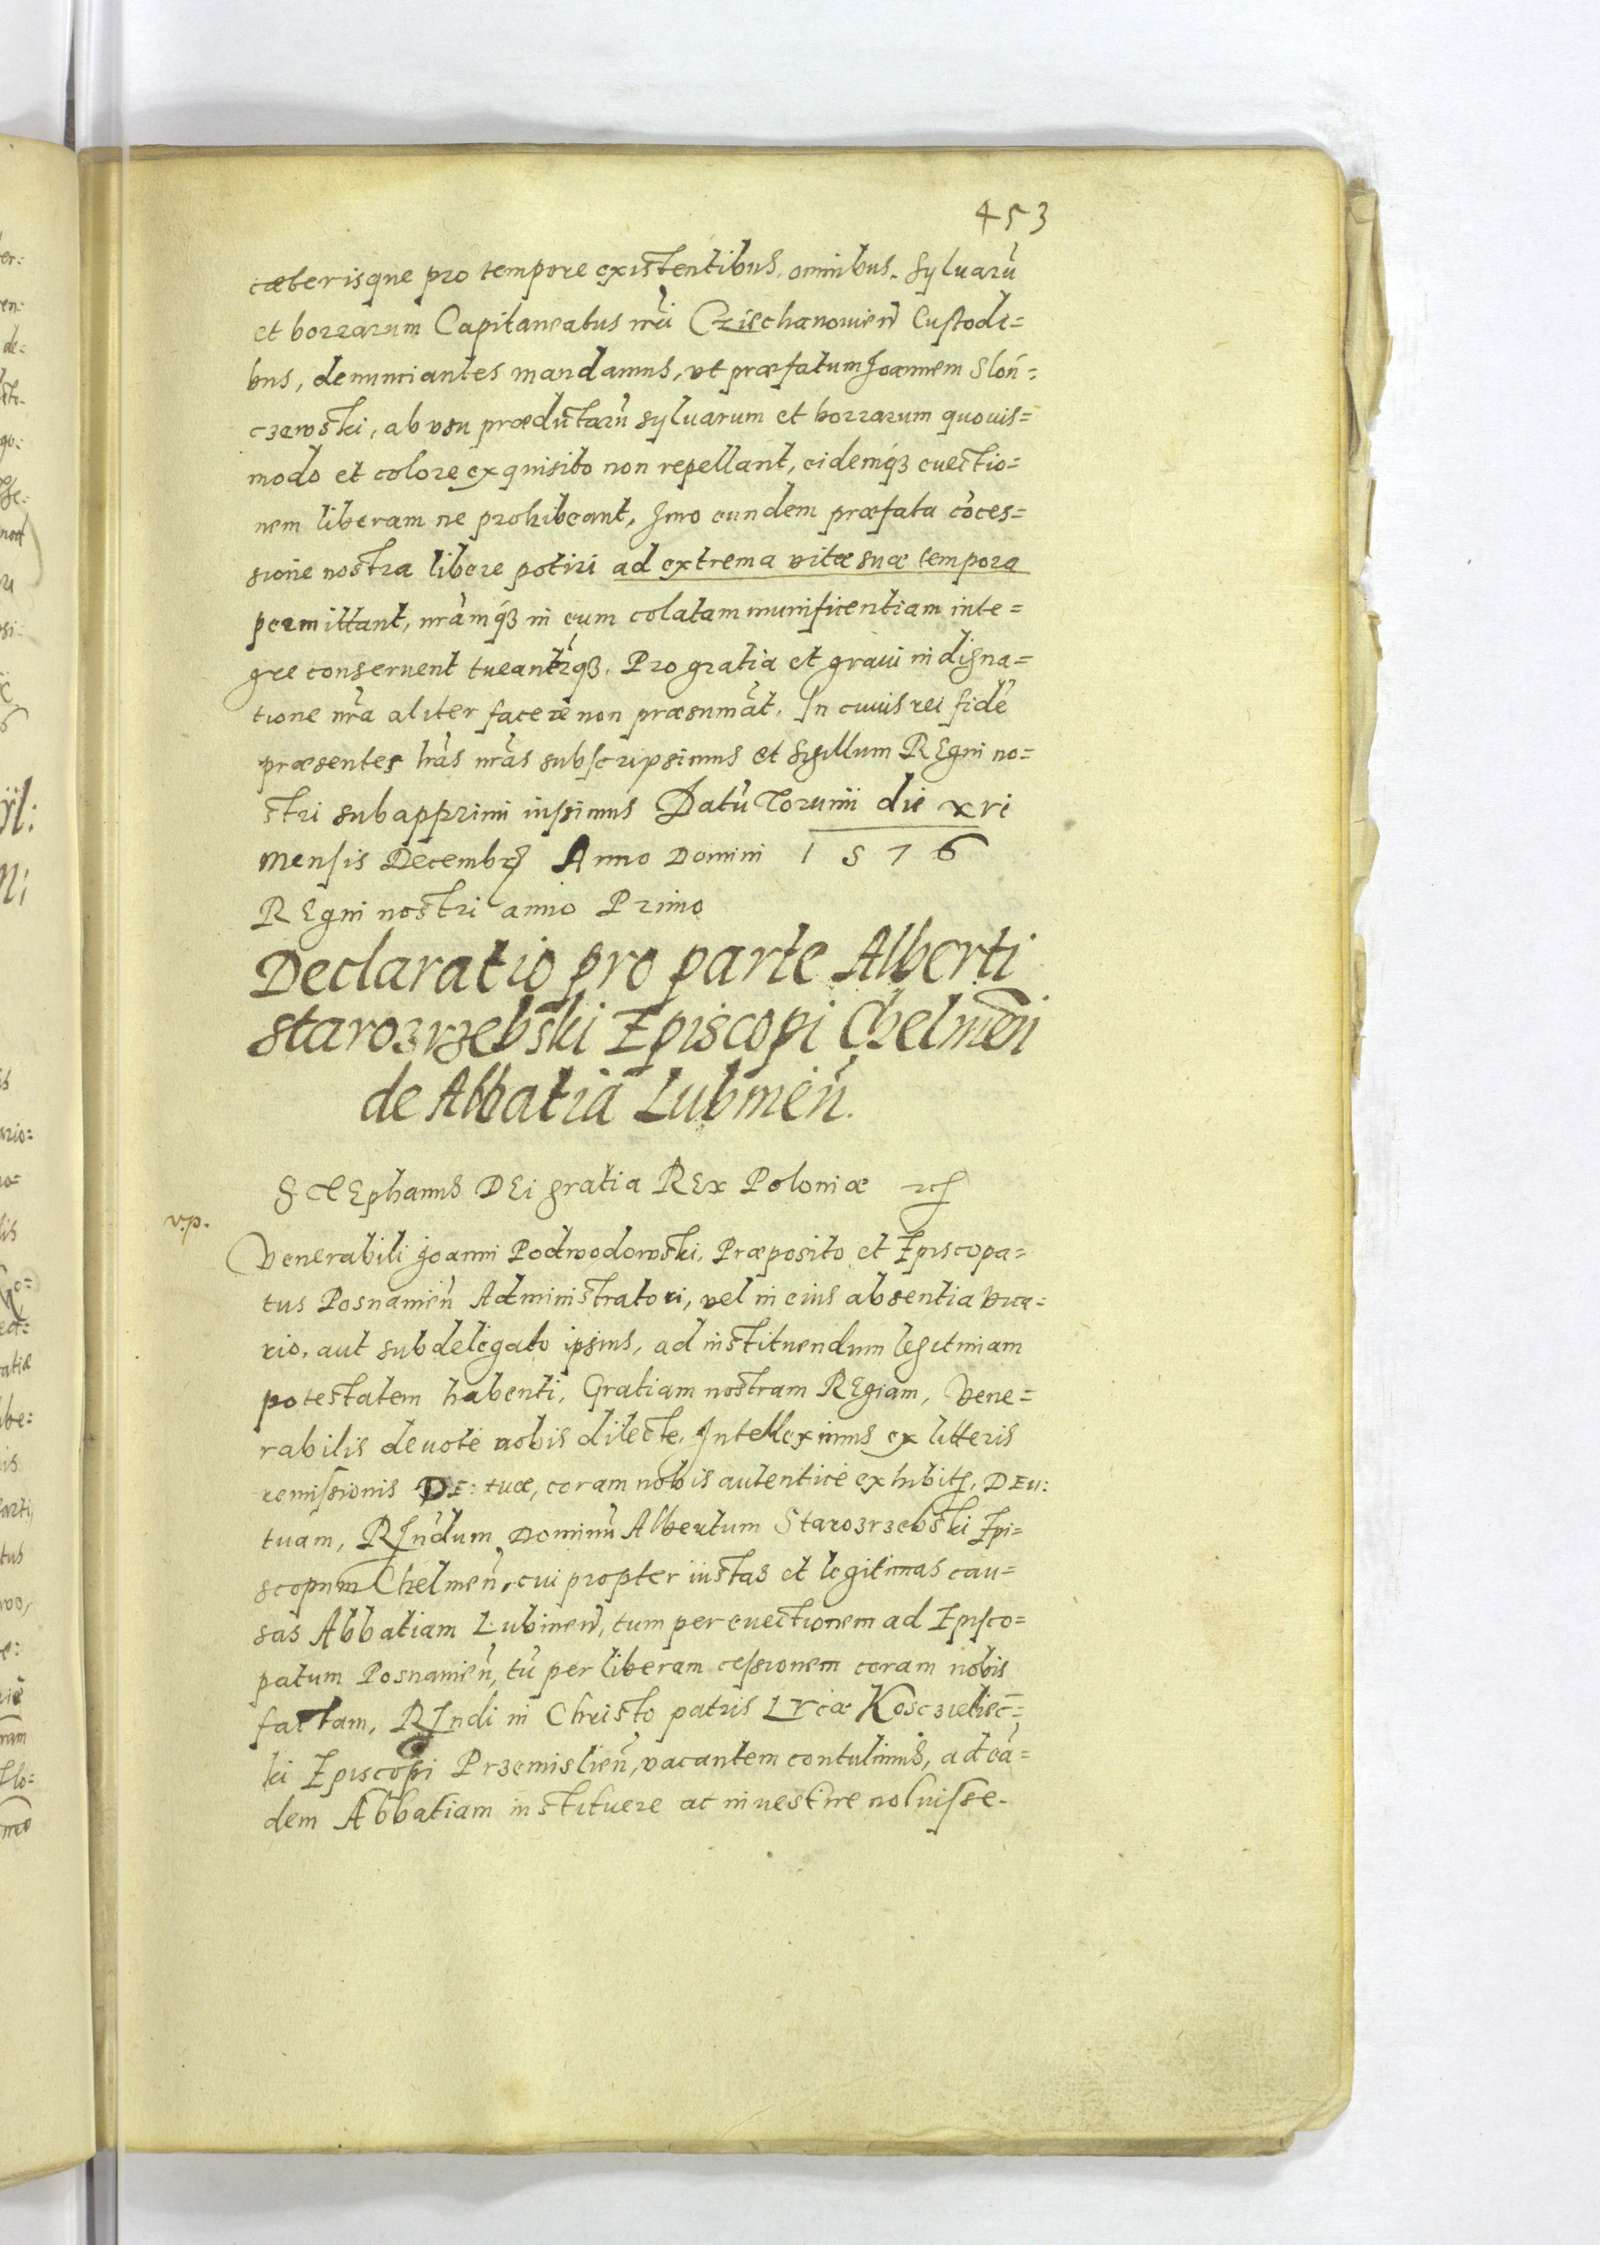 453
cæterisque pro tempore existentibus omnibus sylvarũ
et borrarum Capitaneatus nr̃i Cziechanovień Custodi=
bus, denunciantes mandamus, ut præfatum Joannem Sloń=
czewski, ab usu prædictarũ sylvarum et borrarum quovis=
modo et colore exquisito non repellant, eidemq́ȝ evectio=
nem liberam ne prohibeant, Imo eundem præfata cõces=
sione nostra libere potiri ad extrema vitæ suæ tempora
permittant, nr̃amq́ȝ in eum colatam munificentiam inte=
gre conservent tueantr̃qȝ. Pro gratia et gravi indigna=
tione nr̃a aliter facere non præsumãt. In cuius rei fidẽ
præsentes lr̃as nr̃as subscripsimus et Sigillum REgni no=
stri subapprimi iussimus Datũ Torunii die xvi
mensis Decembr̃ Anno Domini 1576
REgni nostri anno Primo
Declaratio pro parte Alberti
starozrzebski Episcopi Chelmeñ
de Abbatia Lubineñ.
STEphanus DEi gratia REx Poloniæ
v.p.
Venerabili Joanni Podwodowski, Præposito et Episcopa=
tus Posnanieñ Administratori, vel in eius absentia vica=
rio, aut subdelegato ipsius, ad instituendum legitimam
potestatem habenti, Gratiam nostram REgiam, Vene=
rabilis devote nobis dilecte. Intelleximus ex litteris
remissionis DE: tuæ, coram nobis autentice exhibitꝭ, DEv:
tuam, REndum Dominũ Albertum Starozrzebski Epi=
scopum Chelmeñ, cui propter iustas et legitimas cau=
sas Abbatiam Lubineñ, tum per evectionem ad Episco=
patum Posnanieñ, tũ per liberam cessionem coram nobis
factam, REndi in Christo patris Lvcæ Kosczielec=
ki Episcopi Przemislieñ, vacantem contulimus, ad eã=
dem Abbatiam instituere ac investire noluisse.